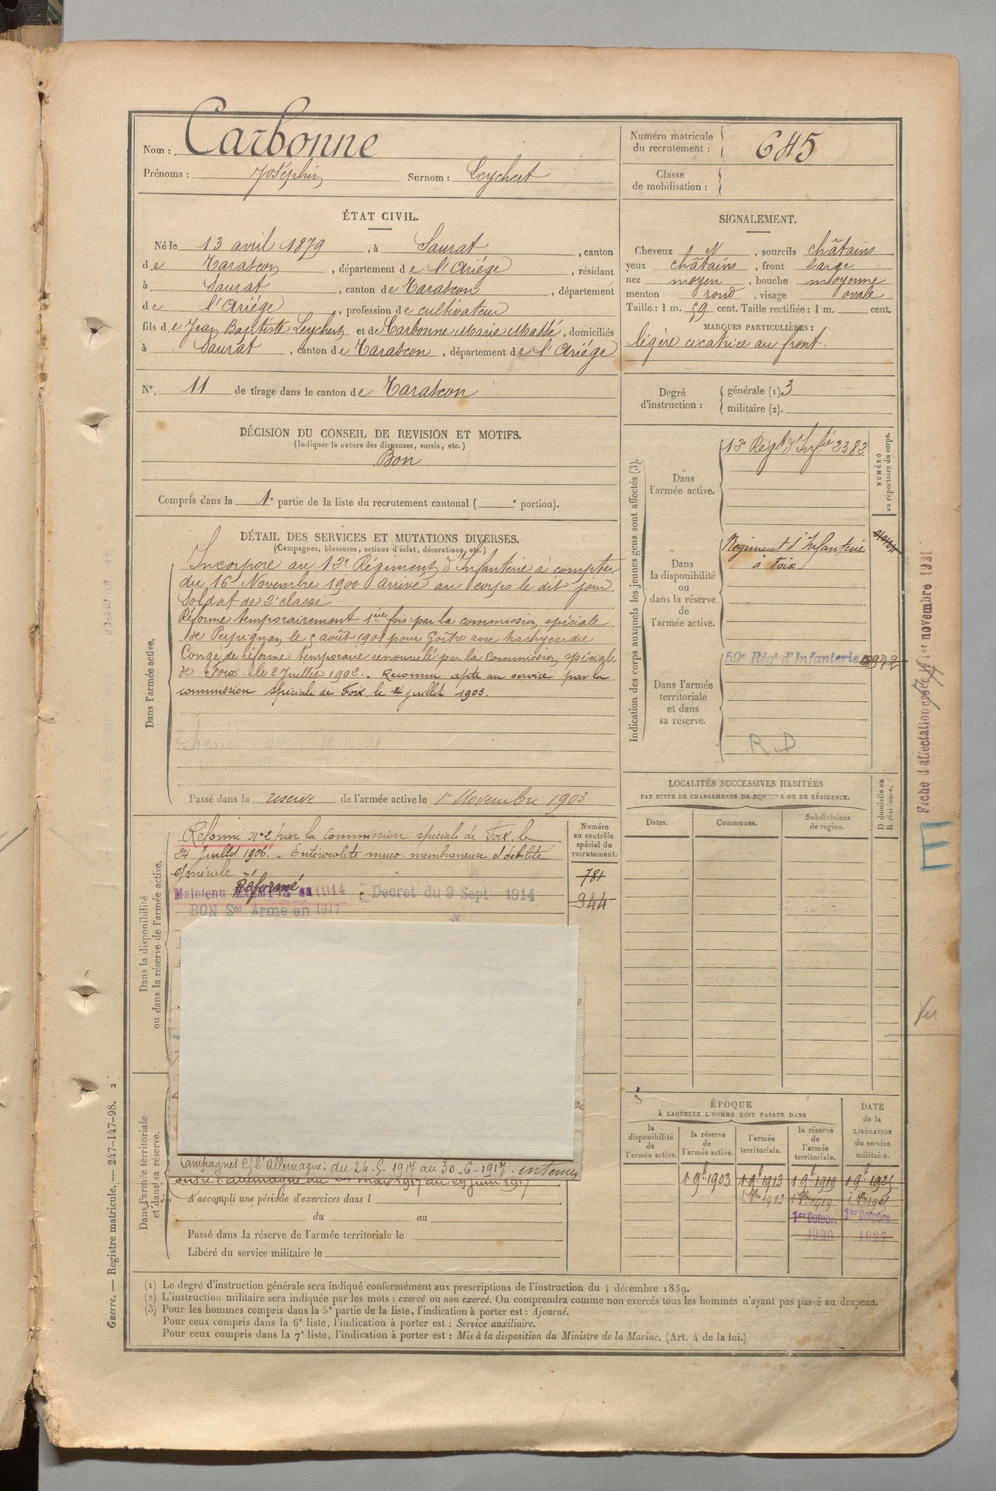 Nom : Carbonne
Prénoms : Joséphin Surnom : Leychert
Numéro matricule du recrutement : 645
Classe de mobilisation :
ÉTAT CIVIL.
Né le 13 avril 1879, à Saurat, canton
de Tarascon, département de l'Ariége, résidant
à Saurat, canton de Tarascon, département
de l'Ariége, profession de cultivateur
fils de Jean Baptiste Leychert et de Carbonne Marie, domiciliés
à Saurat, canton de Tarascon, département de l'Ariége
N° 11 de tirage dans le canton de Tarascon
DÉCISION DU CONSEIL DE REVISION ET MOTIFS.
(Indiquer la nature des dispenses, sursis, etc.)
Bon
Compris dans la 1e partie de la liste du recrutement cantonal ( e portion).
SIGNALEMENT.
Cheveux, sourcils châtains
yeux châtains, front large
nez moyen, bouche moyenne
menton rond, visage ovale
Taille : 1 m. 59 cent. Taille rectifiée : 1 m. cent.
MARQUES PARTICULIÈRES :
légère cicatrice au front.
Degré d'instruction : générale (1) 3
militaire (2).
DÉTAIL DES SERVICES ET MUTATIONS DIVERSES.
(Campagnes, blessures, actions d'éclat, décorations, etc.)
Dans l'armée active.
Incorporé au Régiment d'Infanterie à compter
du 16 Novembre 1900 Arrivé au corps le dit jour
Soldat de 2e classe
Réformé temporairement 1ère fois par la commission spéciale
de Perpignan, le août 1901 pour Goître avec tachycardie
Congé de réforme temporaire renouvelé par la Commission spéciale
de Foix le Juillet 1902. Reconnu apte au service par la
commission spéciale de Foix le juillet 1903.
Passé dans la réserve de l'armée active le 1er Novembre 1903
Indication des corps auxquels les jeunes gens sont affectés (3).
NUMÉRO au répertoire du corps.
Dans l'armée active.
Régt d'Infie 2382
Dans la disponibilité ou dans la réserve de l'armée active.
Régiment d'Infanterie
à Foix
Dans l'armée territoriale et dans sa réserve.
59e Régt d'Infanterie
R D
Fiche d'affectation 1er novembre 1921
Dans la disponibilité ou dans la réserve de l'armée active.
Réformé n°2 par la Commission spéciale de Foix le
24 Juillet 1906. Entérocolite muco membraneuse débilité
générale
Maintenu Réformé 1914 Decret du 9 Sept 1914
BON Sce Armé en 1917
Numéro au contrôle spécial du recrutement.
781
944
LOCALITÉS SUCCESSIVES HABITÉES
PAR SUITE DE CHANGEMENTS DE DOMICILE OU DE RÉSIDENCE.
Dates. Communes. Subdivisions de région. D domicile ou R résidence.
Vu
Dans l'armée territoriale et dans sa réserve.
Campagnes c/ l'allemagne : du 24-5-1917 au 30-6-1917. intérieur
A accompli une période d'exercices dans l
du au
Passé dans la réserve de l'armée territoriale le
Libéré du service militaire le
ÉPOQUE
À LAQUELLE L'HOMME DOIT PASSER DANS
la disponibilité de l'armée active.
la réserve de l'armée active.
l'armée territoriale.
la réserve de l'armée territoriale.
DATE de la LIBÉRATION du service militaire.
1903 1913 1919
1er Octobre 1er Octobre
Guerre. — Registre matricule. — 247-147-98. 2
(1) Le degré d'instruction générale sera indiqué conformément aux prescriptions de l'instruction du 4 décembre 1889.
(2) L'instruction militaire sera indiquée par les mots : exercé ou non exercé. On comprendra comme non exercés tous les hommes n'ayant pas passé au drapeau.
(3) Pour les hommes compris dans la 5e partie de la liste, l'indication à porter est : Ajourné.
Pour ceux compris dans la 6e liste, l'indication à porter est : Service auxiliaire.
Pour ceux compris dans la 7e liste, l'indication à porter est : Mis à la disposition du Ministre de la Marine. (Art. 4 de la loi.)